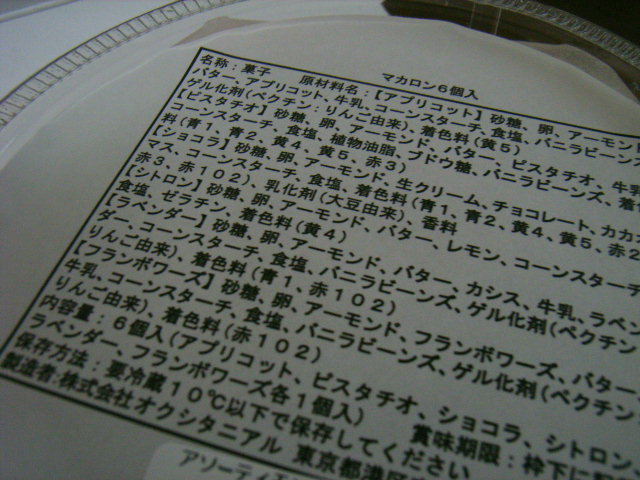 マカロン6個入
名称：菓子　原材料名：【アプリコット】砂糖、卵、アーモンド
バター、アプリコット、牛乳、コーンスターチ、食塩、バニラビーンズ、
ゲル化剤（ペクチン：りんご由来）、着色料（黄5）
【ピスタチオ】砂糖、卵、アーモンド、バター、ピスタチオ、牛乳
コーンスターチ、食塩、植物油脂、ブドウ糖、バニラビーンズ、着色
料（青1、青2、黄4、黄5、赤3）
【ショコラ】砂糖、卵、アーモンド、生クリーム、チョコレート、カカオ
マス、コーンスターチ、食塩、着色料（青1、青2、黄4、黄5、赤2
赤3、赤102）、乳化剤（大豆由来）、香料
【シトロン】砂糖、卵、アーモンド、バター、レモン、コーンスターチ
食塩、ゼラチン、着色料（黄4）
【ラベンダー】砂糖、卵、アーモンド、バター、カシス、牛乳、ラベン
ダー、コーンスターチ、食塩、バニラビーンズ、ゲル化剤（ペクチン
りんご由来）、着色料（青1、赤102）
【フランボワーズ】砂糖、卵、アーモンド、フランボワーズ、バター、
牛乳、コーンスターチ、食塩、バニラビーンズ、ゲル化剤（ペクチン
りんご由来）、着色料（赤102）
内容量：6個入（アプリコット、ピスタチオ、ショコラ、シトロン、
ラベンダー、フランボワーズ各1個入）　賞味期限：枠下に記
保存方法：要冷蔵10℃以下で保存してください
製造者：株式会社オクシタニアル　東京都港区
アソーティ